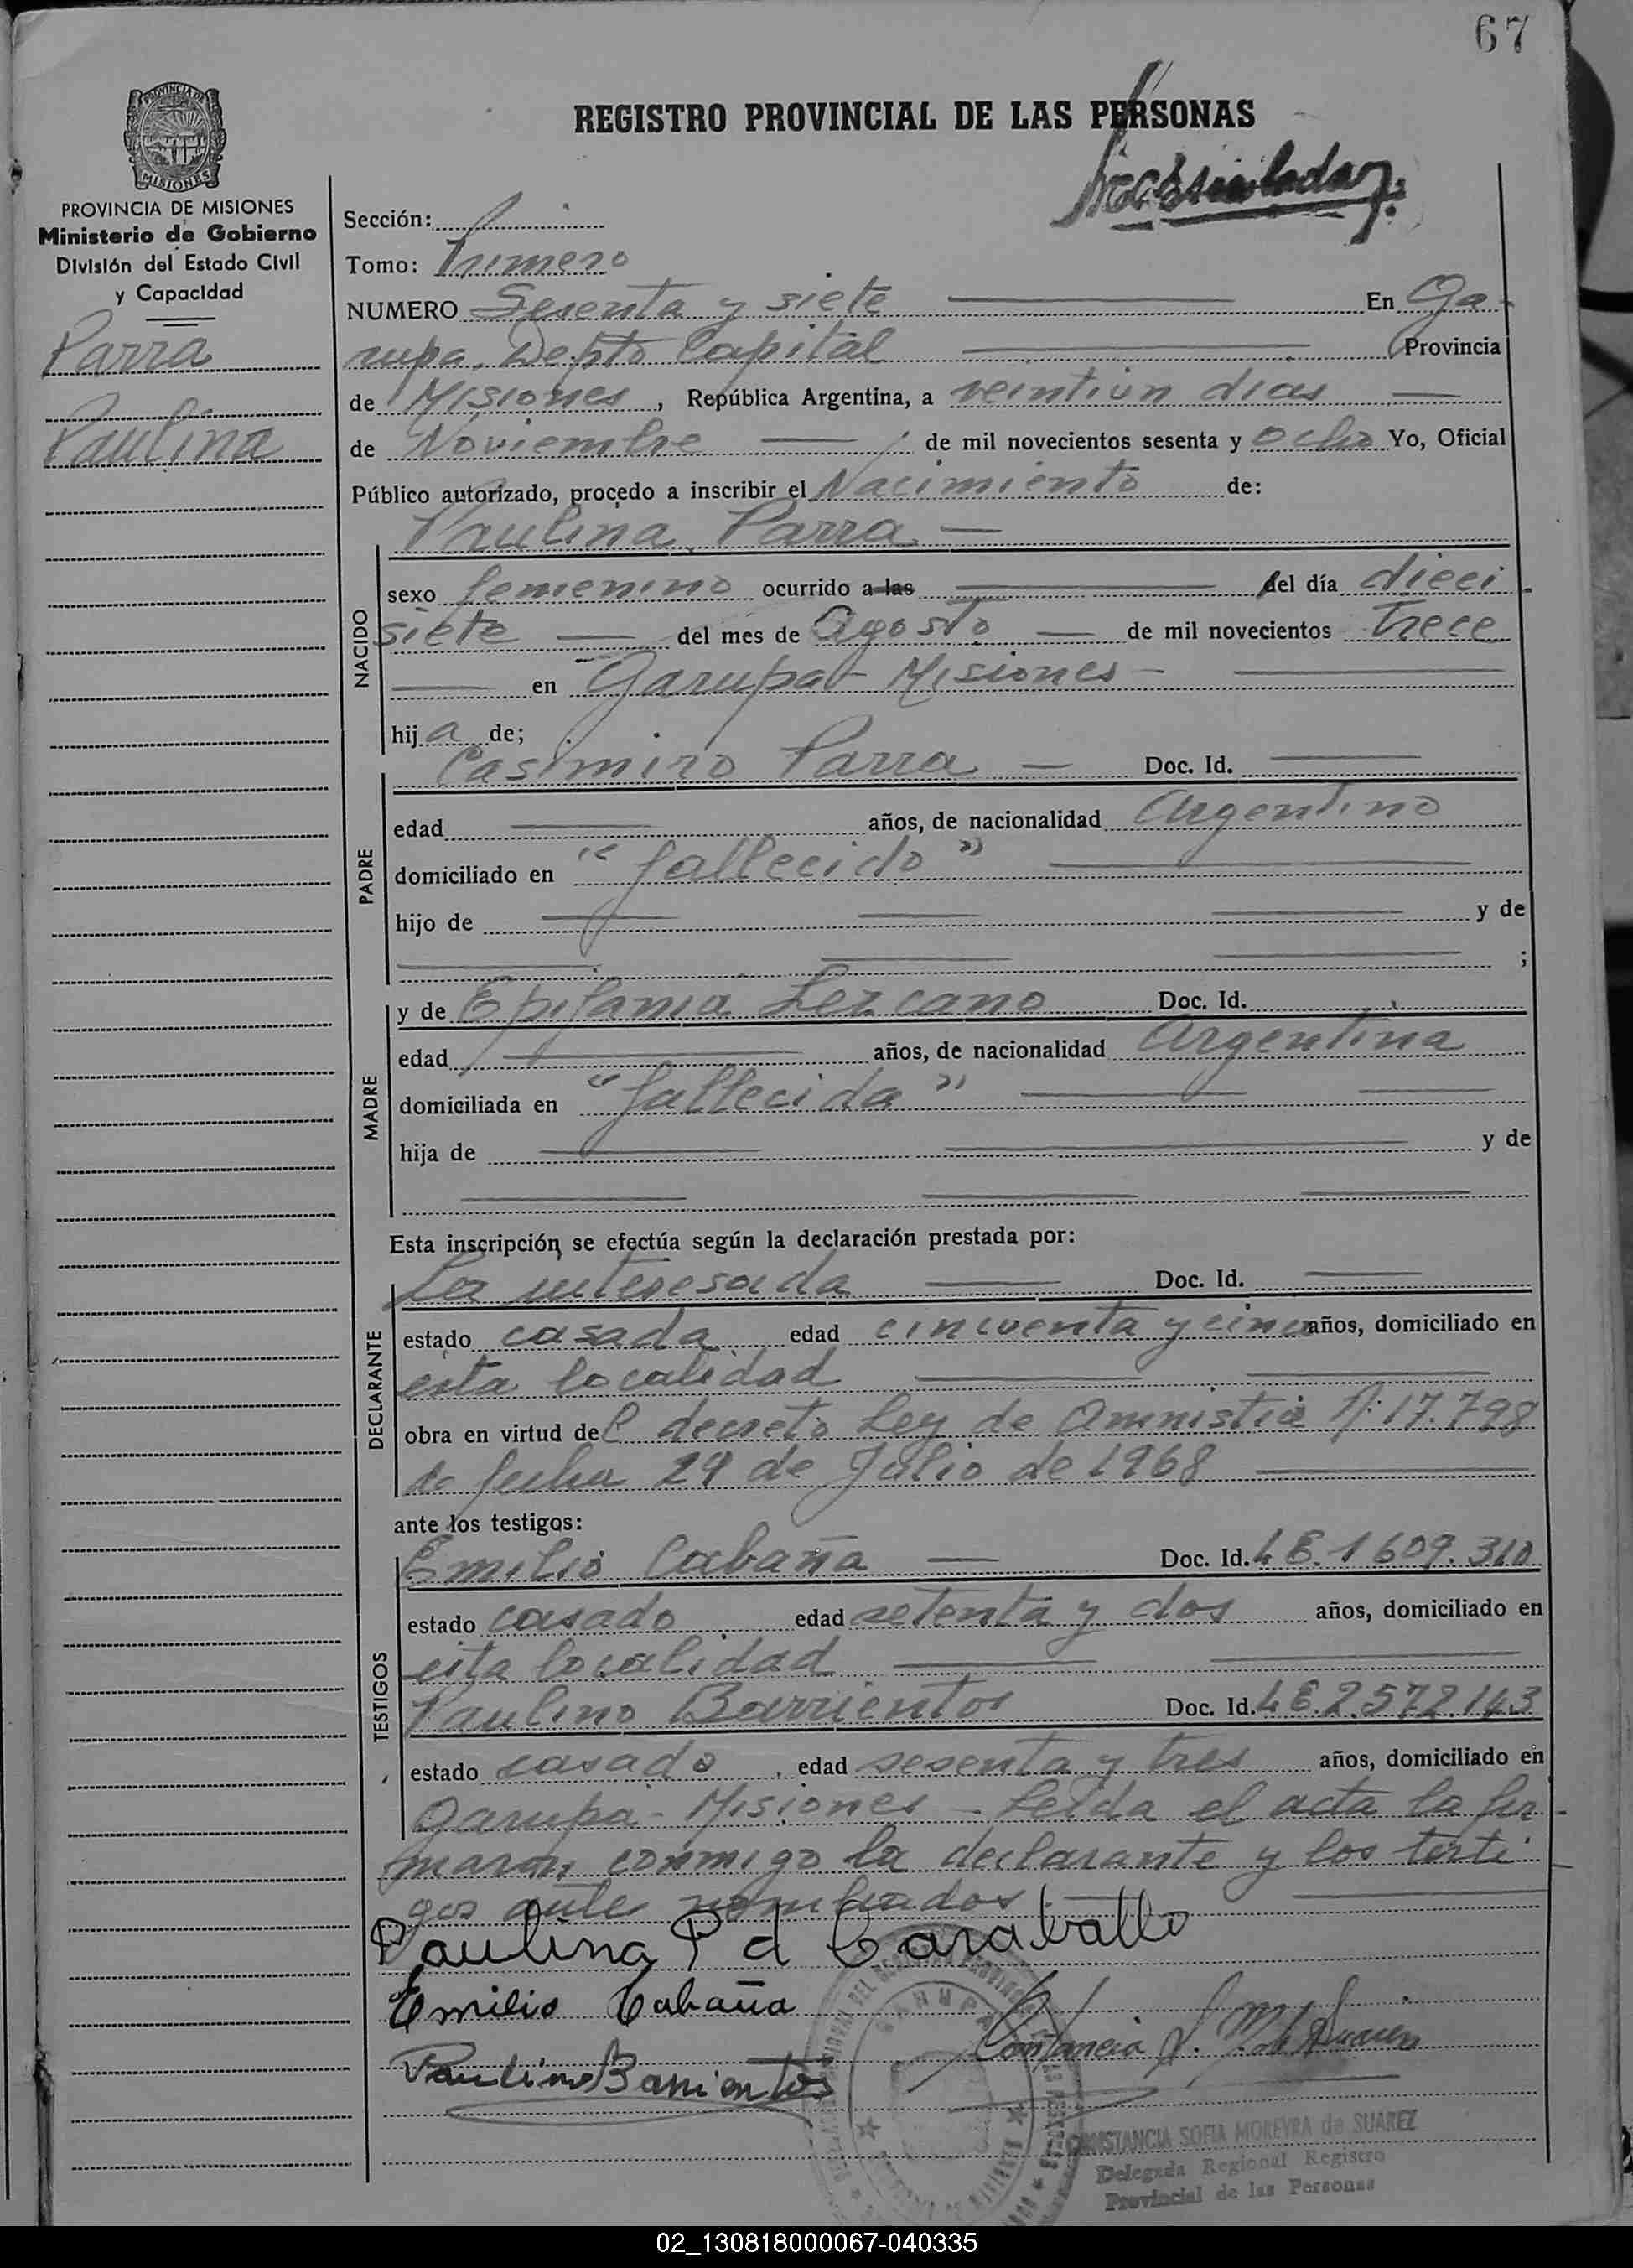 67
REGISTRO PROVINCIAL DE LAS PERSONAS
PROVINCIA DE MISIONES
PROVINCIA DE MISIONES
Ministerio de Gobierno
División del Estado Civil
y Capacidad
Parra
Paulina
Sección:
Tomo: Primero
NUMERO Sesenta y siete En Ga-
rupa, Depto Capital Provincia
de Misiones, República Argentina, a veintiún dias
de Noviembre de mil novecientos sesenta y ocho Yo, Oficial
Público autorizado, procedo a inscribir el Nacimiento de:
Paulina Parra
NACIDO
sexo femenino ocurrido a las del día dieci
siete del mes de Agosto de mil novecientos trece
en Garupa - Misiones -
hija de;
PADRE
Casimiro Parra Doc. Id.
edad años, de nacionalidad Argentino
domiciliado en "fallecido"
hijo de y de
;
MADRE
y de Epifania Lezcano Doc. Id.
edad años, de nacionalidad Argentina
domiciliada en "fallecida"
hija de y de
Esta inscripción se efectúa según la declaración prestada por:
DECLARANTE
La interesada Doc. Id.
estado casada edad cincuenta y cinco años, domiciliado en
esta localidad
obra en virtud del decreto Ley de Amnistia N: 17.798
de fecha 29 de Julio de 1968
ante los testigos:
TESTIGOS
Emilio Cabaña Doc. Id. L E. 1609.310
estado casado edad setenta y dos años, domiciliado en
esta localidad
Paulino Barrientos Doc. Id. L E. 2.572.143
estado casado edad sesenta y tres años, domiciliado en
Garupa - Misiones - Leída el acta la fir-
maron conmigo la declarante y los testi-
gos ante nombrados
Paulina P d Caraballo
Emilio Cabaña
Paulino Barrientos
Constancia S. M. de Suarez
CONSTANCIA SOFIA MOREYRA de SUAREZ
Delegada Regional Registro
Provincial de las Personas
02_130818000067-040335